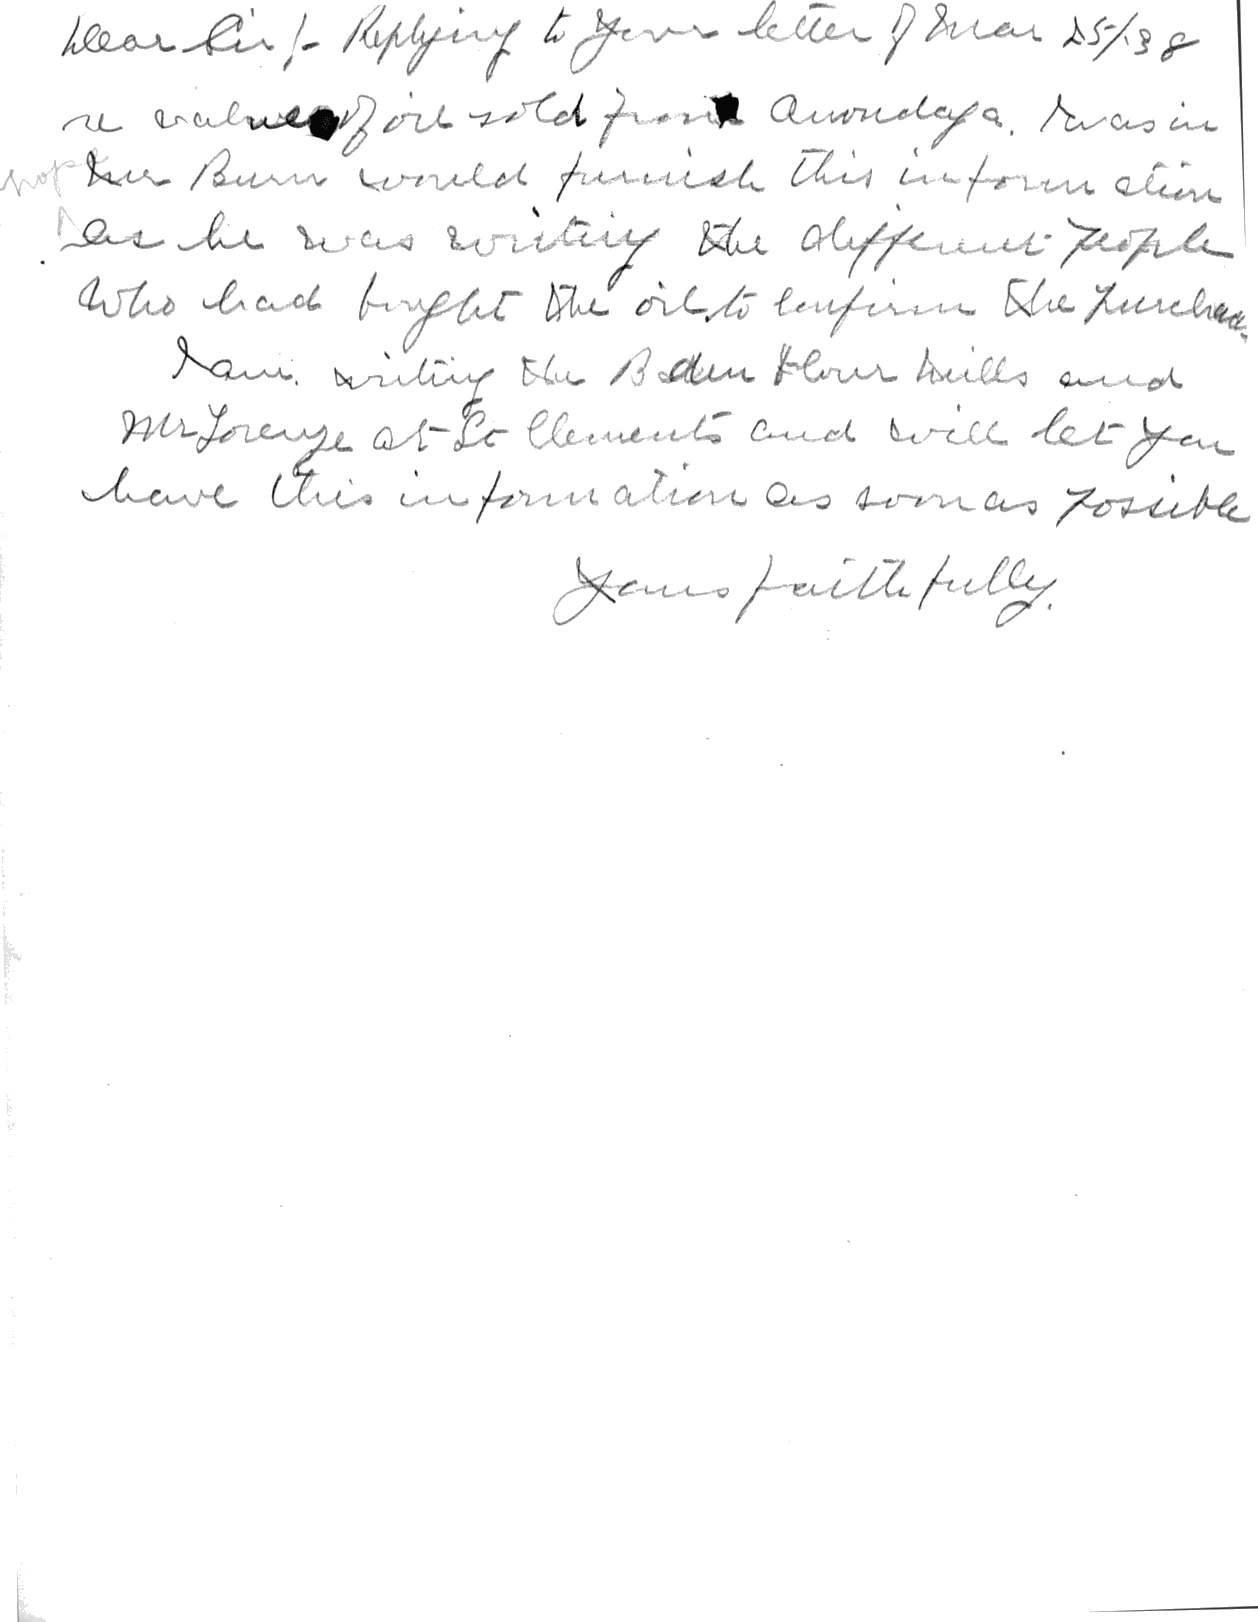 Dear Sir/- Replying to your letter of Mar 25/38
re value of oil sold from Onondaga. I was in
hopes Mr Burn would furnish this information
as he was writing the different people
Who had bought the oil to confirm the purchase.
I am writing the Baden Flour Mills and
Mr Lorenze at St Clements and will let you
have this information as soon as possible
Yours faithfully.